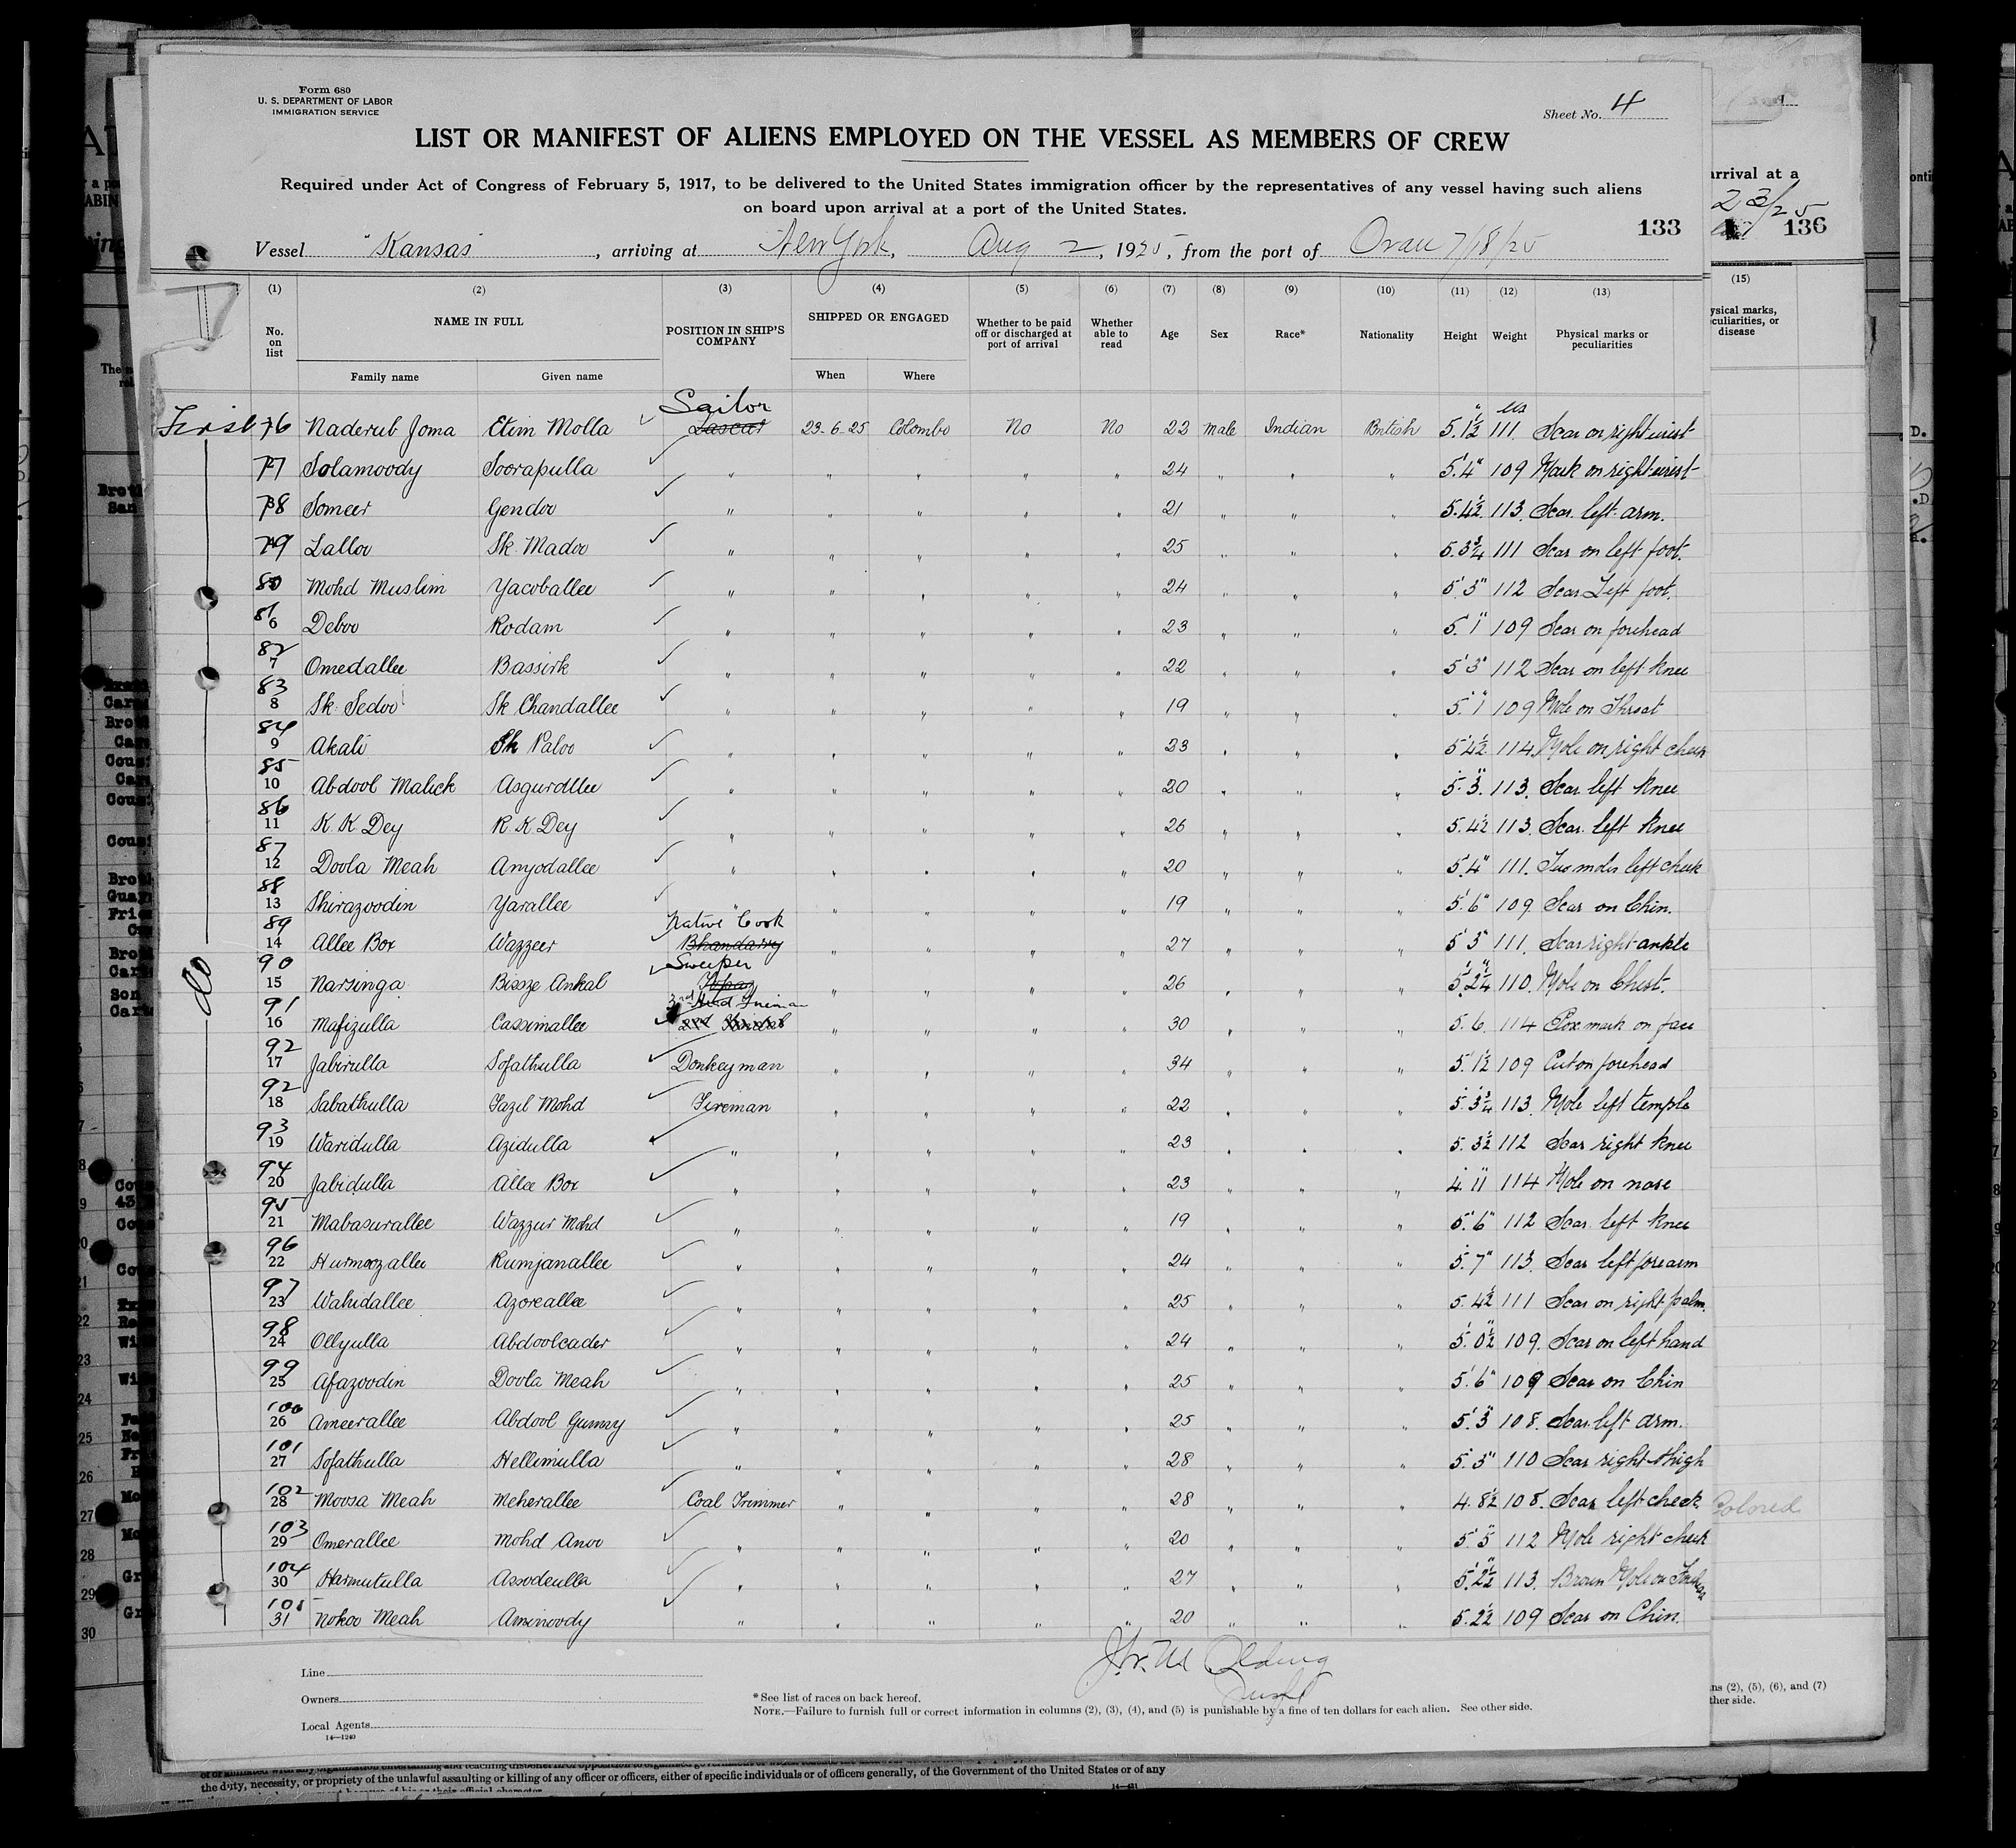 Form 680
U. S. DEPARTMENT OF LABOR
IMMIGRATION SERVICE
Sheet No. 4
LIST OR MANIFEST OF ALIENS EMPLOYED ON THE VESSEL AS MEMBERS OF CREW
Required under Act of Congress of February 5, 1917, to be delivered to the United States immigration officer by the representatives of any vessel having such aliens
on board upon arrival at a port of the United States.
133
Vessel "Kansas", arriving at New York, Aug 2, 1925, from the port of Oran 7/18/25
(1) (2) (3) (4) (5) (6) (7) (8) (9) (10) (11) (12) (13)
No. on list NAME IN FULL POSITION IN SHIP'S COMPANY SHIPPED OR ENGAGED Whether to be paid off or discharged at port of arrival Whether able to read Age Sex Race* Nationality Height Weight Physical marks or peculiarities
Family name Given name When Where
Sailor
First 76 Naderub Joma Etim Molla Lascar 23-6-25 Colombo No No 22 Male Indian British 5.1½ 111. Scar on right wrist
77 Solamoody Soorapulla " " " " " 24 " " " 5'.4" 109 Mark on right wrist
78 Someer Gendoo " " " " " 21 " " " 5.4½ 113. Scar left arm.
79 Lalloo Sk. Madoo " " " " " 25 " " " 5.3¾ 111 Scar on left foot.
80 Mohd Muslim Yacoballee " " " " " 24 " " " 5'3" 112 Scar Left foot.
81 6 Deboo Rodam " " " " " 23 " " " 5'.1" 109 Scar on forehead
82 7 Omedallee Bassirk " " " " " 22 " " " 5'3" 112 Scar on left knee
83 8 Sk. Sedoo Sk Chandallee " " " " " 19 " " " 5'.1" 109 Mole on Throat
84 9 Akali Sk Paloo " " " " " 23 " " " 5'4½ 114 Mole on right cheek
85 10 Abdool Malick Asgurdllee " " " " " 20 " " " 5'.3" 113. Scar left knee
86 11 K K Dey R. K Dey " " " " " 26 " " " 5.4½ 113. Scar left knee
87 12 Doola Meah Anyodallee " " " " " 20 " " " 5'.4" 111. Two moles left cheek
88 13 Shirazoodin Yarallee " " " " " 19 " " " 5'.6" 109. Scar on Chin.
Native Cook
89 14 Allee Box Wazzeer Bhandarry " " " " 27 " " " 5'3" 111. Scar right ankle
Sweeper
90 15 Narsinga Bissze Ankal " " " " 26 " " " 5'.2¼" 110. Mole on Chest.
3rd Head Fireman
91 16 Mafizulla Cassimallee 2nd " " " " 30 " " " 5.6. 114 Pox mark on face
92 17 Jabirulla Sofathulla Donkeyman " " " " 34 " " " 5'.1½ 109 Cut on forehead
92 18 Sabathulla Fazil Mohd Fireman " " " " 22 " " " 5'.3¾ 113. Mole left temple
93 19 Waridulla Azidulla " " " " " 23 " " " 5.3½ 112 Scar right knee
94 20 Jabidulla Allee Box " " " " " 23 " " " 4'.11" 114 Mole on nose
95 21 Mabasurallee Wazzur Mohd " " " " " 19 " " " 5'.6" 112 Scar left knee
96 22 Hurmoozallee Rumjanallee " " " " " 24 " " " 5'.7" 113. Scar left forearm
97 23 Wahidallee Azoreallee " " " " " 25 " " " 5.4½ 111 Scar on right palm.
98 24 Ollyulla Abdoolcader " " " " " 24 " " " 5'.0½" 109. Scar on left hand
99 25 Afazoodin Doola Meah " " " " " 25 " " " 5'.6" 109 Scar on Chin
100 26 Ameerallee Abdool Gunny " " " " " 25 " " " 5'.3" 108. Scar left arm.
101 27 Sofathulla Hellimulla " " " " " 28 " " " 5'.5" 110 Scar right thigh
102 28 Moosa Meah Meherallee Coal Trimmer " " " " 28 " " " 4.8½ 108. Scar left cheek
103 29 Omerallee Mohd Anoo " " " " " 20 " " " 5'.5" 112 Mole right cheek
104 30 Harmutulla Assodeulla " " " " " 27 " " " 5'.2½" 113. Brown Mole on
105 31 Nokoo Meah Aminoody " " " " " 20 " " " 5.2½ 109 Scar on Chin.
do
Line
Owners
Local Agents
14—1240
*See list of races on back hereof.
NOTE.—Failure to furnish full or correct information in columns (2), (3), (4), and (5) is punishable by a fine of ten dollars for each alien. See other side.
arrival at a
136
(15)
Colored
ns (2), (5), (6), and (7)
ther side.
the duty, necessity, or propriety of the unlawful assaulting or killing of any officer or officers, either of specific individuals or of officers generally, of the Government of the United States or of any